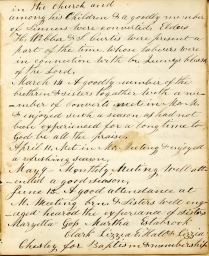 in the church and
among his Children & a goodly number
of sinners were converted, Elders
& Sisters were present a
part of the time whose labours were
in connection with
of the Lord.
March 14 A goodly number of the
brethren & sisters together with a nu-
mber of converts met in
& enjoyed such a season as had not
been experienced for a long time to
God be all the praise
April 11, Met in Mo. Meeting & enjoyed
a refreshing season,
May 9 - Monthly Meeting well att-
ended a good season,
June 13. A good attendance at
M. Meeting bren & sisters well eng-
aged heared the experience of sisters
Maryetta Martha Estabrook
Clark Lizzea Lizzea
for Baptism & membership